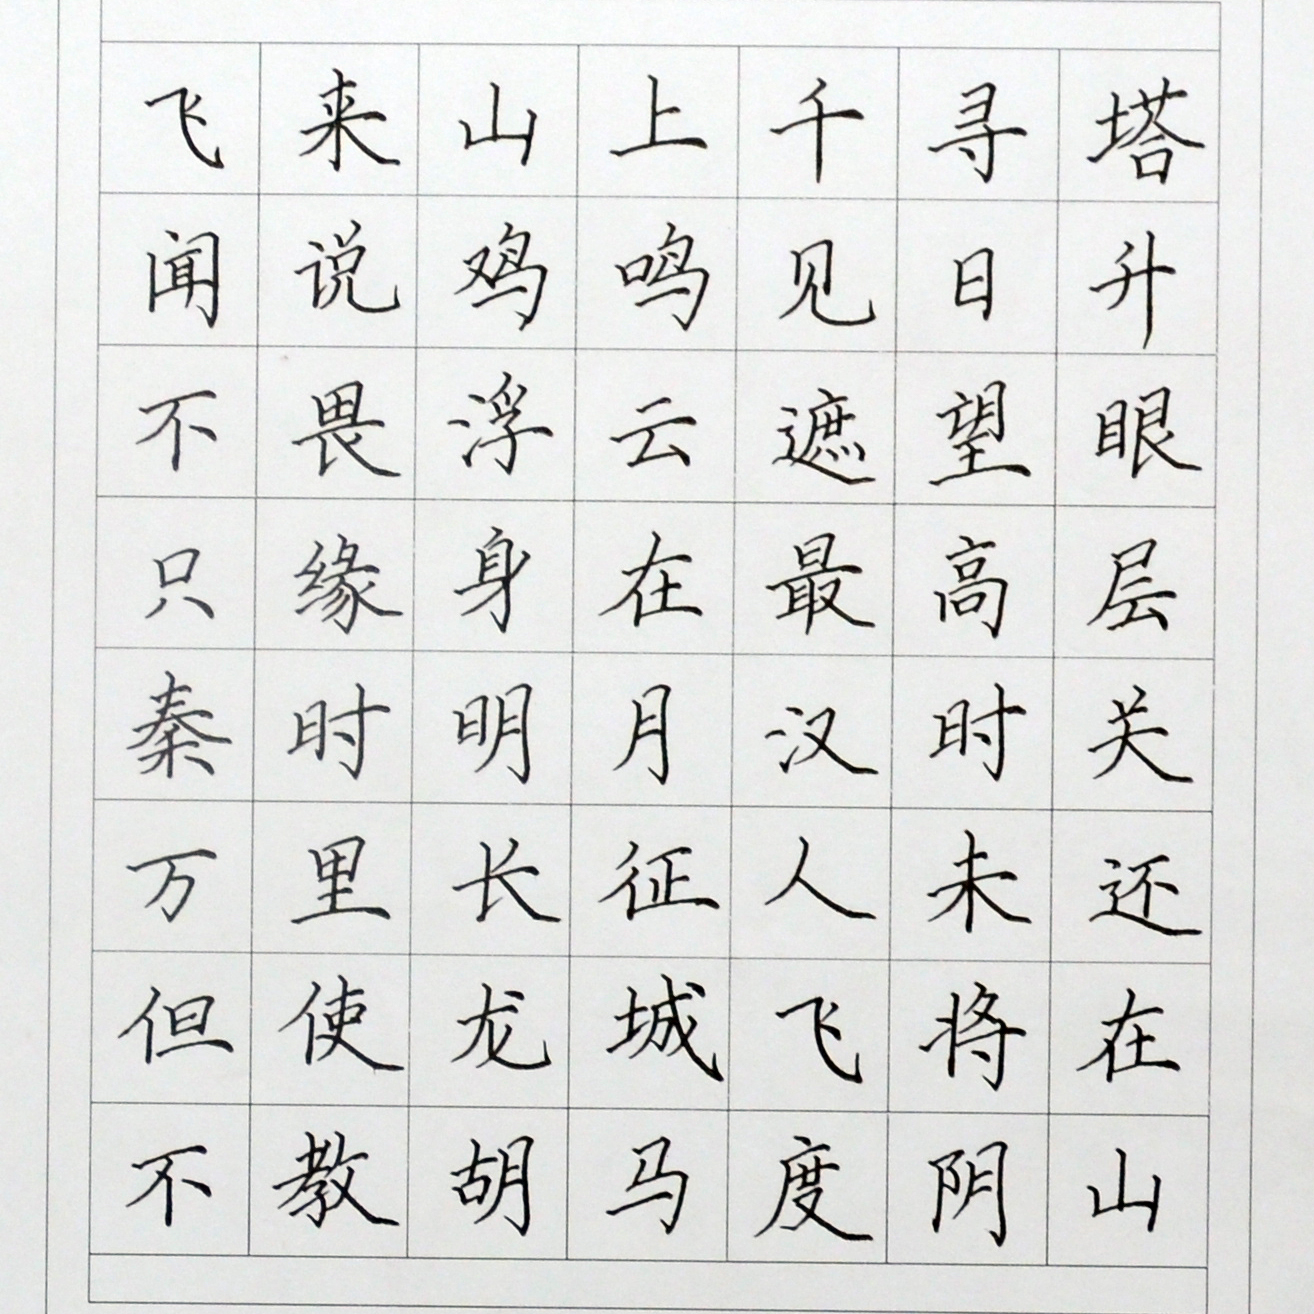 飞来山上千寻塔
闻说鸡鸣见日升
不畏浮云遮望眼
只缘身在最高层
秦时明月汉时关
万里长征人未还
但使龙城飞将在
不教胡马度阴山